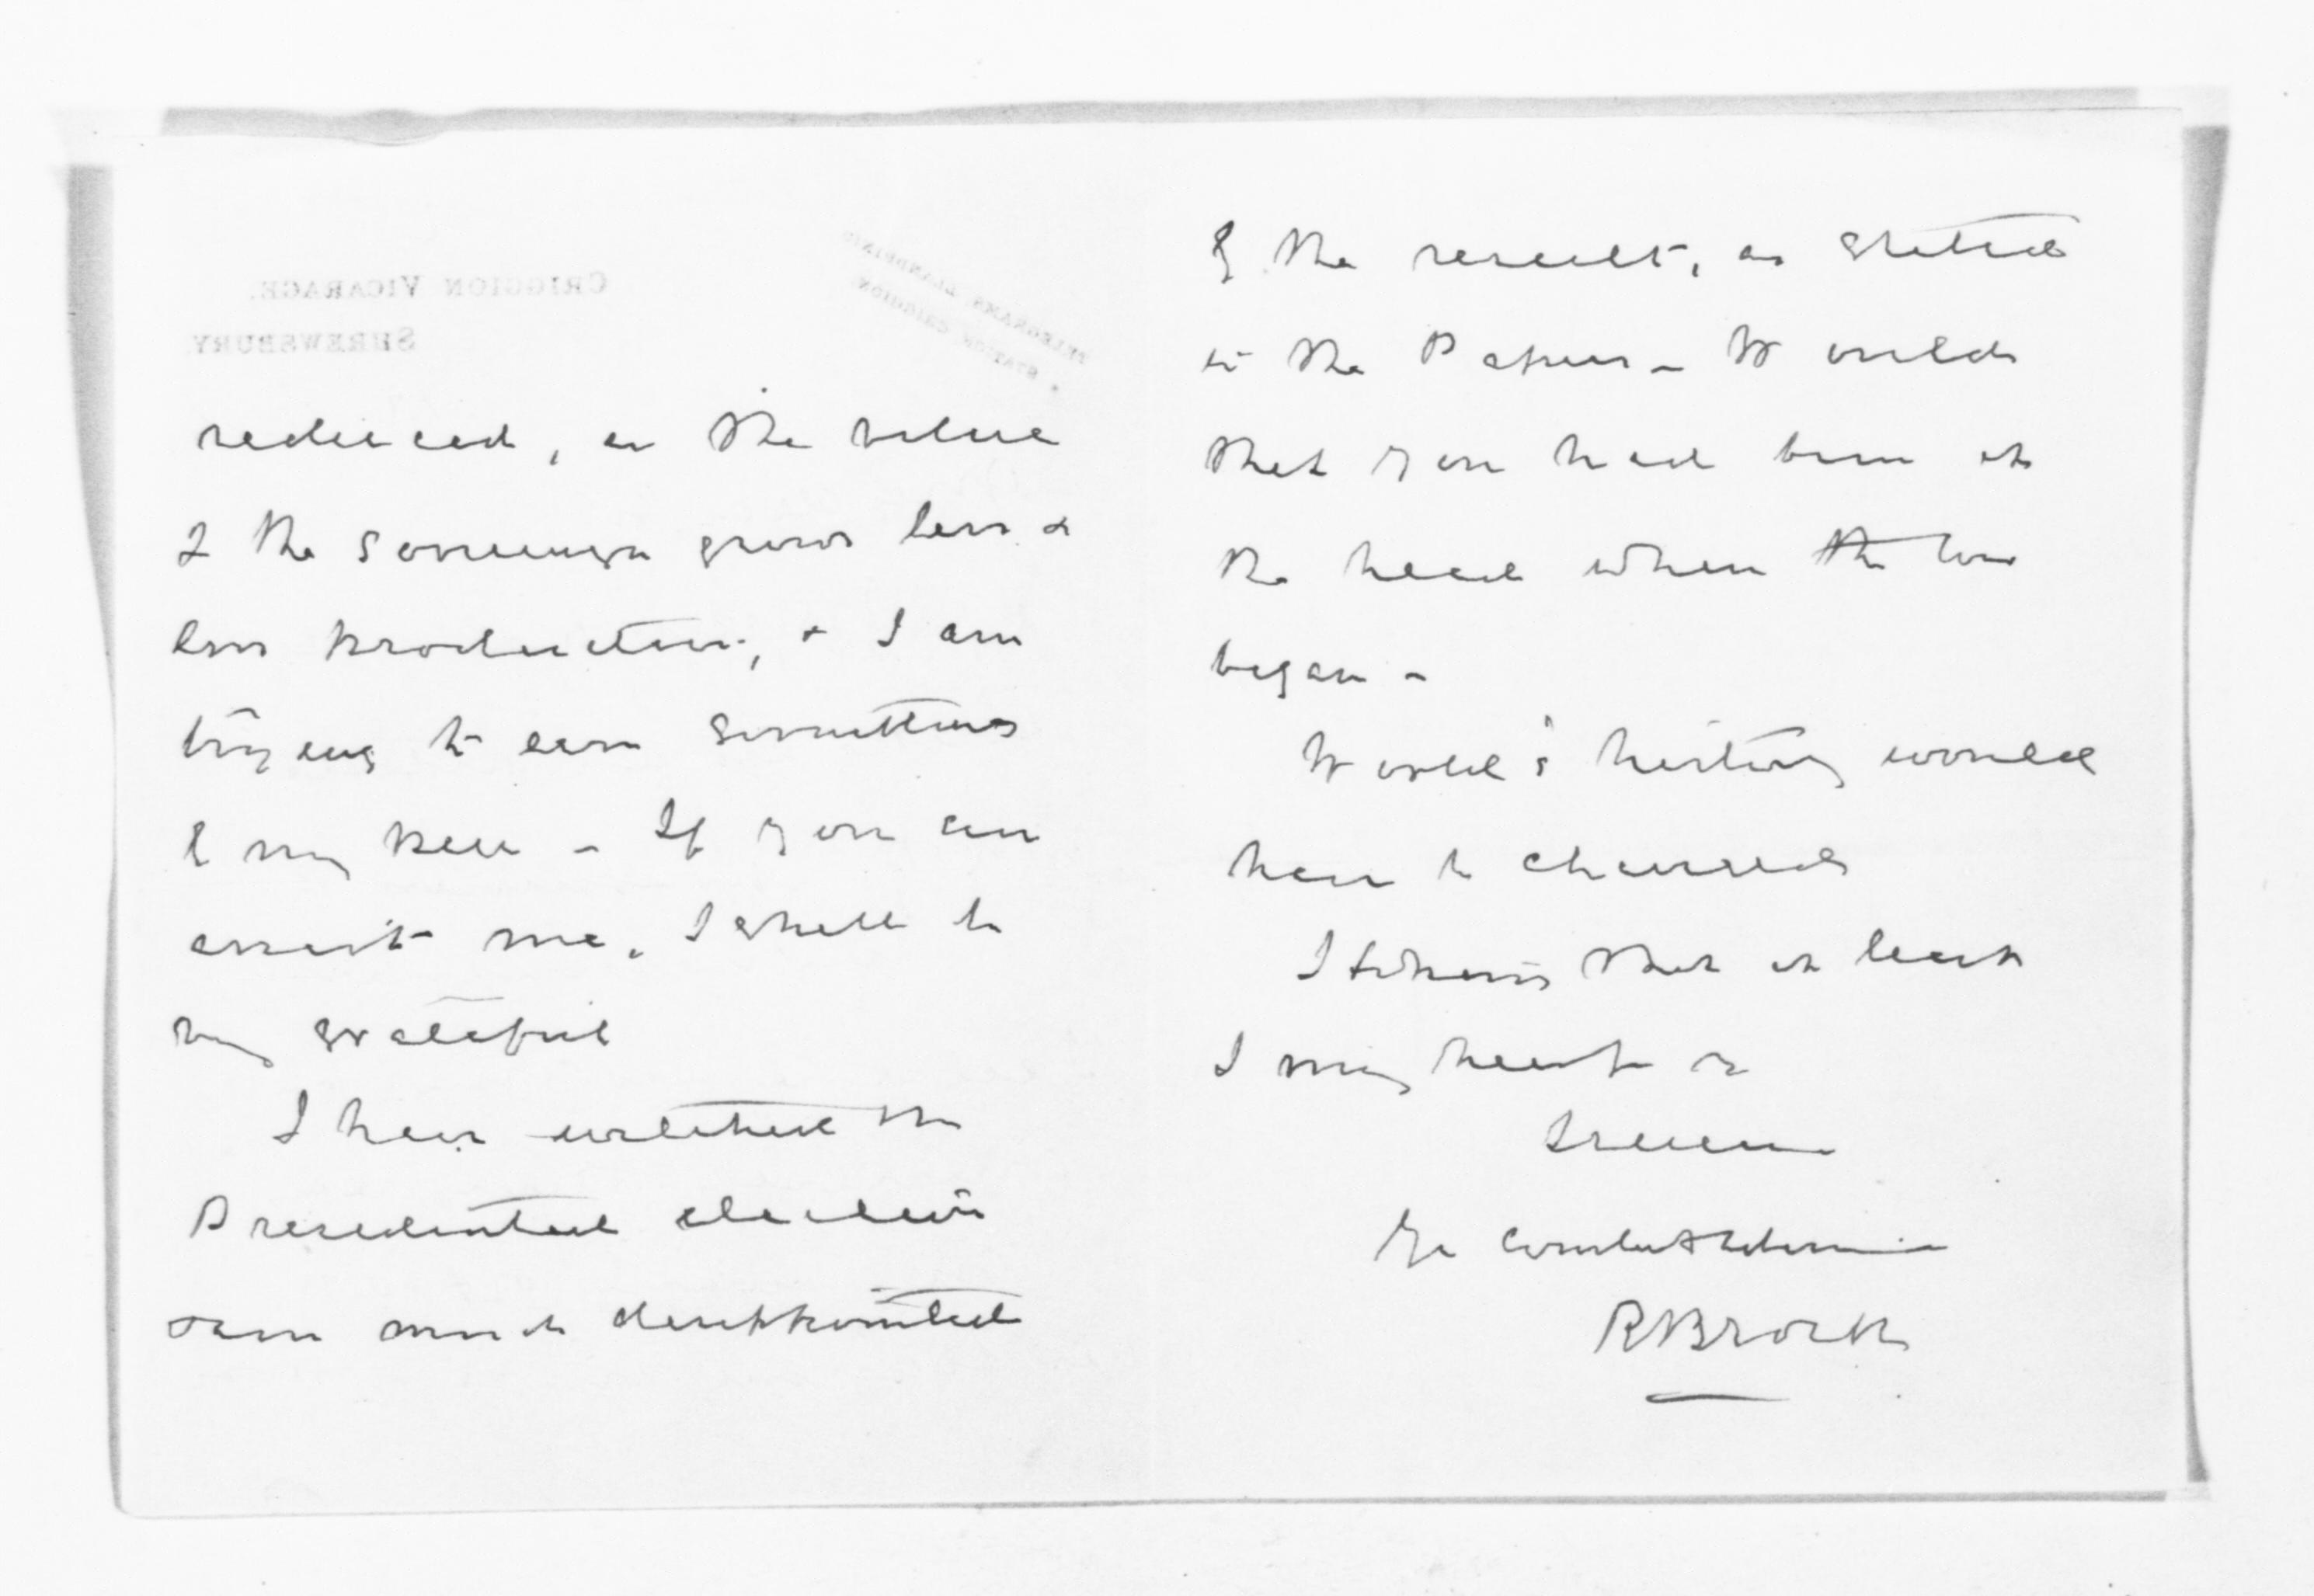 CRIGGION VICARAGE.
SHREWSBURY.
TELEGRAMS LLANDRINIO
STATION CRIGGION
reduced, as the value
of the sovereign grows less &
less productive, & I am
trying to earn something
by my pen - If you can
assist me, I shall be
very grateful
I have watched the
Presidential election
& am much disappointed
by the result, as stated
in the Papers - Would
that you had been at
the head when the war
began -
World's history would
have be changed
I that at least
I my heart is
Yr
RBrock